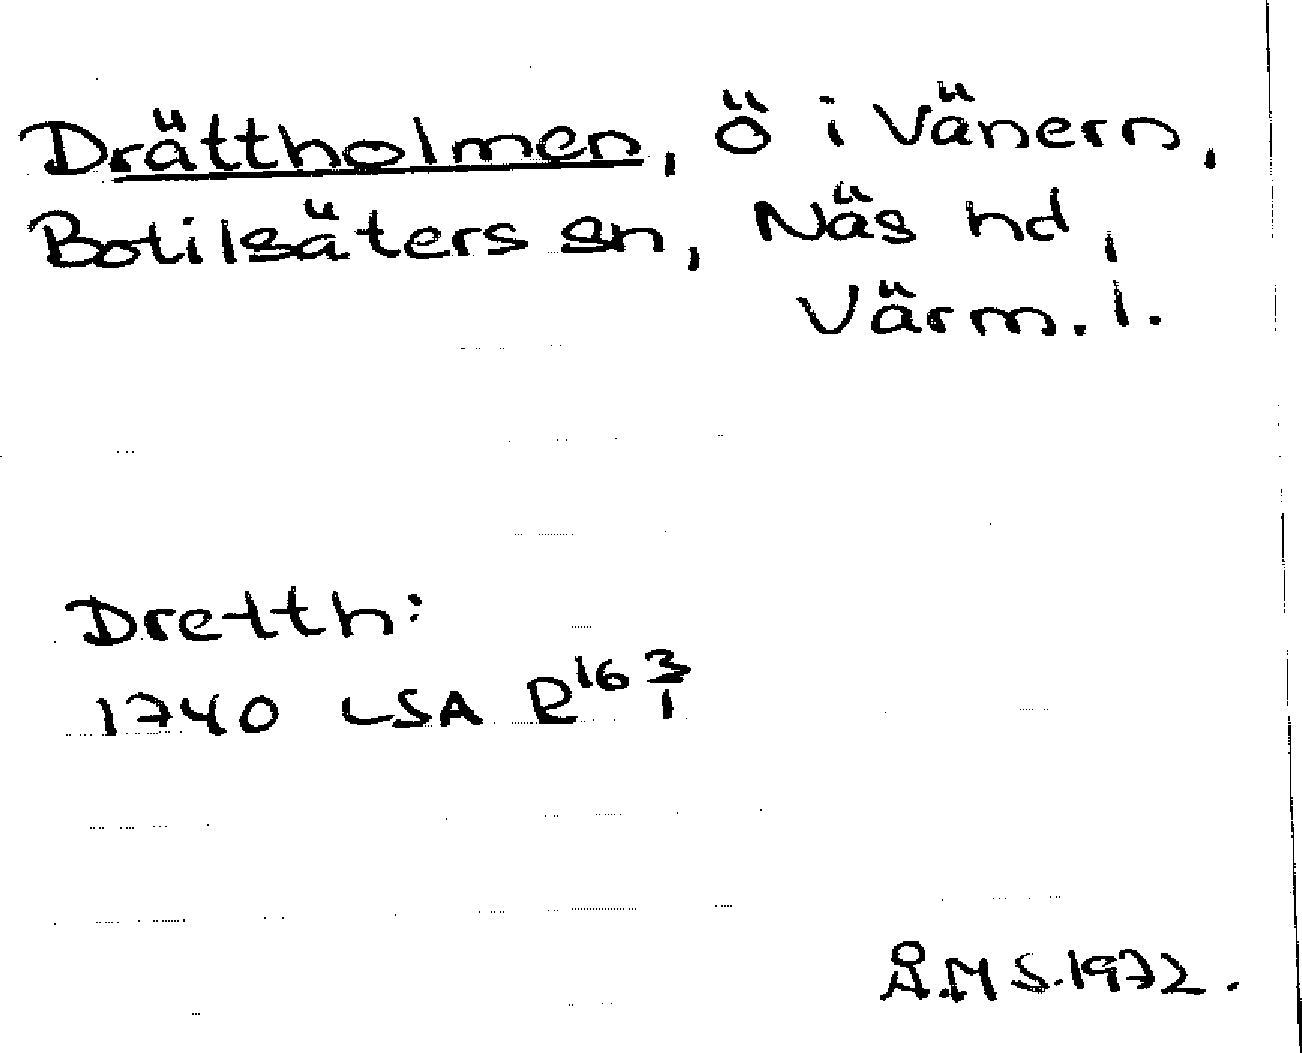 Drättholmen, ö i Vänern,
Botilsäters sn, Näs hd,
Värm. l.
Dretth:
1740 LSA R16 3/1
Å.M S.1972.